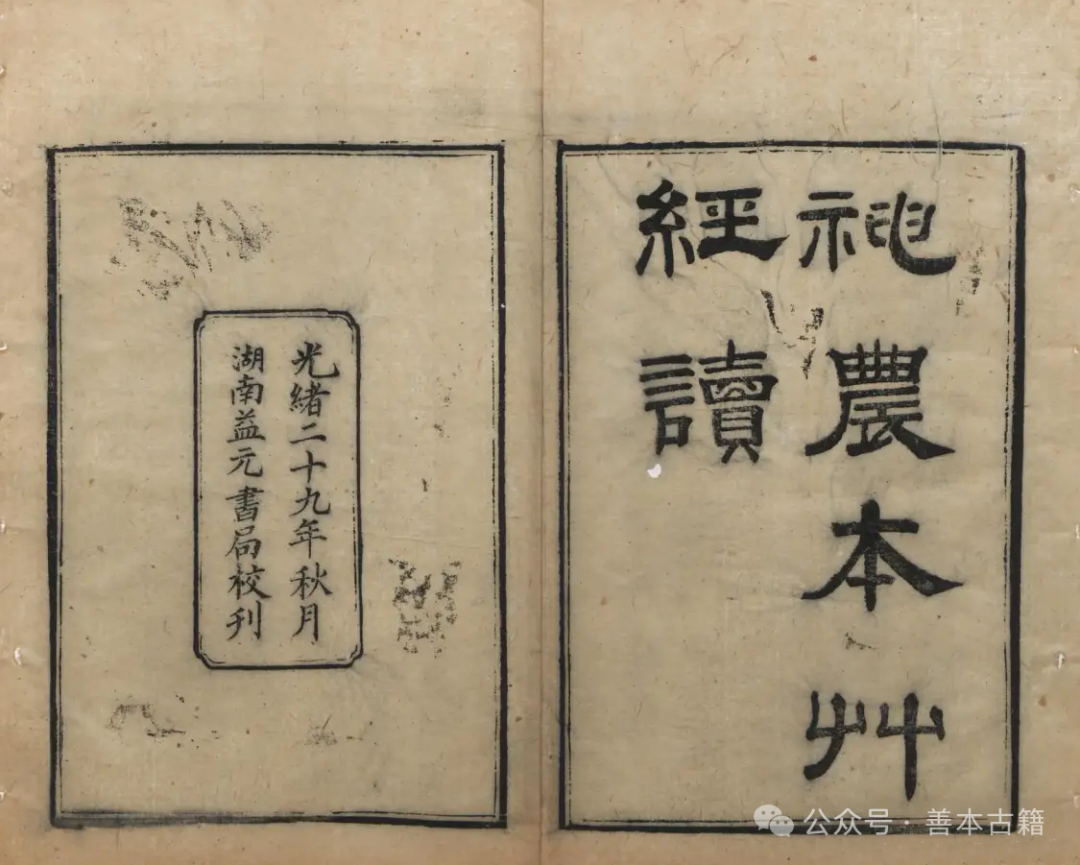 神農本艸
經讀
光緒二十九年秋月
湖南益元書局校刊
公众号·善本古籍